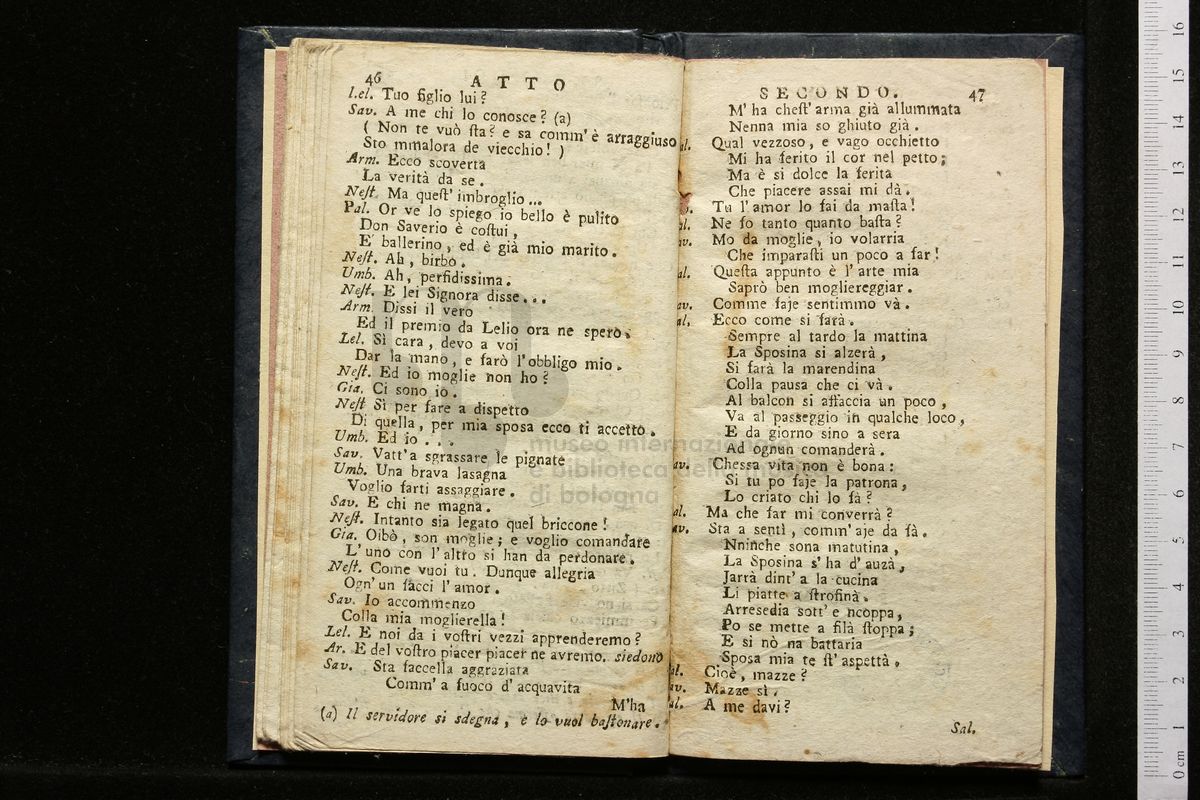 46 ATTO
Lel. Tuo figlio lui?
Sav. A me chi lo conosce? (a)
( Non te vuò sta? e sa comm' è arraggiuso
Sto mmalora de viecchio! )
Arm. Ecco scoverta
La verità da se.
Nest. Ma quest' imbroglio...
Pal. Or ve lo spiego io bello è pulito
Don Saverio è costui,
E' ballerino, ed è già mio marito.
Nest. Ah, birbo.
Umb. Ah, perfidissima.
Nest. E lei Signora disse...
Arm. Dissi il vero
Ed il premio da Lelio ora ne spero.
Lel. Sì cara, devo a voi
Dar la mano, e farò l'obbligo mio.
Nest. Ed io moglie non ho?
Gia. Ci sono io.
Nest Sì per fare a dispetto
Di quella, per mia sposa ecco ti accetto.
Umb. Ed io...
Sav. Vatt'a sgrassare le pignate
Umb. Una brava lasagna
Voglio farti assaggiare.
Sav. E chi ne magna.
Nest. Intanto sia legato quel briccone!
Gia. Oibò, son moglie; e voglio comandare
L' uno con l'altro si han da perdonare.
Nest. Come vuoi tu. Dunque allegria
Ogn' un facci l'amor.
Sav. Io accommenzo
Colla mia moglierella!
Lel. E noi da i vostri vezzi apprenderemo?
Ar. E del vostro piacer piacer ne avremo. siedono
Sav. Sta faccella aggraziata
Comm' a fuoco d' acquavita
M'ha
(a) Il servidore si sdegna, e lo vuol bastonare.
SECONDO. 47
M' ha chest' arma già allummata
Nenna mia so ghiuto già.
al. Qual vezzoso, e vago occhietto
Mi ha ferito il cor nel petto;
Ma è sì dolce la ferita
Che piacere assai mi dà.
v. Tu l'amor lo fai da masta!
al. Ne so tanto quanto basta?
av. Mo da moglie, io volarria
Che imparasti un poco a far!
al. Questa appunto è l'arte mia
Saprò ben mogliereggiar.
av. Comme faje sentimmo và.
al. Ecco come si farà.
Sempre al tardo la mattina
La Sposina si alzerà,
Si farà la marendina
Colla pausa che ci và.
Al balcon si affaccia un poco,
Va al passeggio in qualche loco,
E da giorno sino a sera
Ad ognun comanderà.
av. Chessa vita non è bona:
Si tu po faje la patrona,
Lo criato chi lo fà?
al. Ma che far mi converrà?
av. Sta a sentì, comm' aje da fà.
Nninche sona matutina,
La Sposina s' ha d' auzà,
Jarrà dint' a la cucina
Li piatte a strofinà.
Arresedia sott' e ncoppa,
Po se mette a filà stoppa;
E si nò na battaria
Sposa mia te st' aspettà.
al. Cioè, mazze?
av. Mazze sì.
al. A me davi?
Sal.
museo internazionale
e biblioteca della musica
di bologna